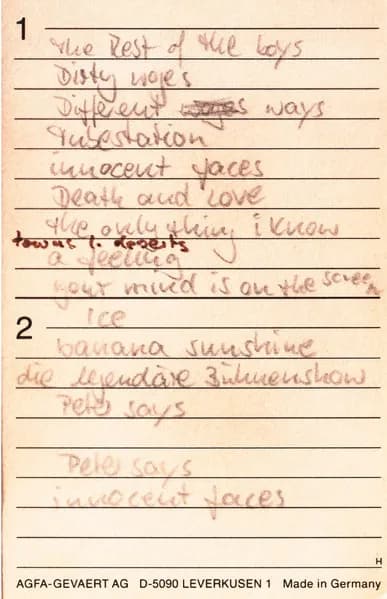 1
the Rest of the boys
Dirty wages
Different wages ways
Infestation
innocent faces
Death and Love
the only thing i know
towns & deserts
a feeling
your mind is on the screen
2
Ice
banana sunshine
die legendäre Bühnenshow
Peter says
Peter says
innocent faces
H
AGFA-GEVAERT AG D-5090 LEVERKUSEN 1 Made in Germany